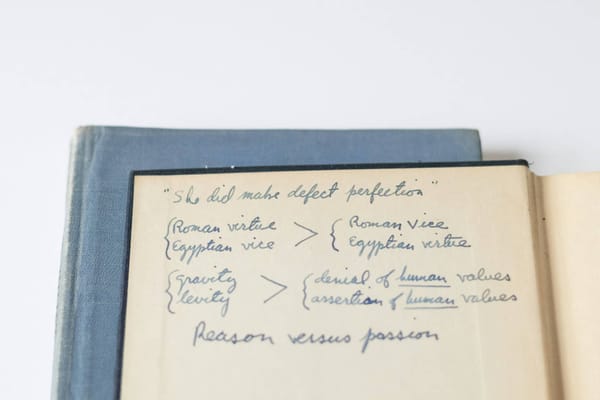 "She did make defect perfection"
{Roman virtue > {Roman vice
{Egyptian vice {Egyptian virtue
{gravity > {denial of human values
{levity {assertion of human values
Reason versus passion